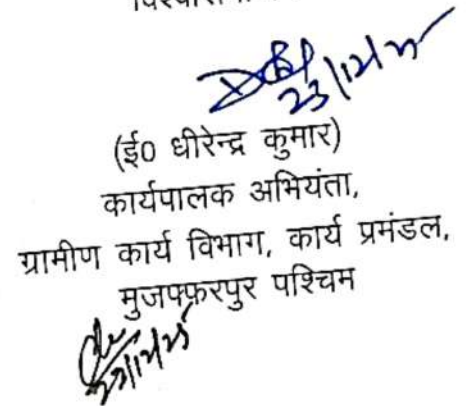 23/12/25
(ई0 धीरेन्द्र कुमार)
कार्यपालक अभियंता,
ग्रामीण कार्य विभाग, कार्य प्रमंडल,
मुजफ्फरपुर पश्चिम